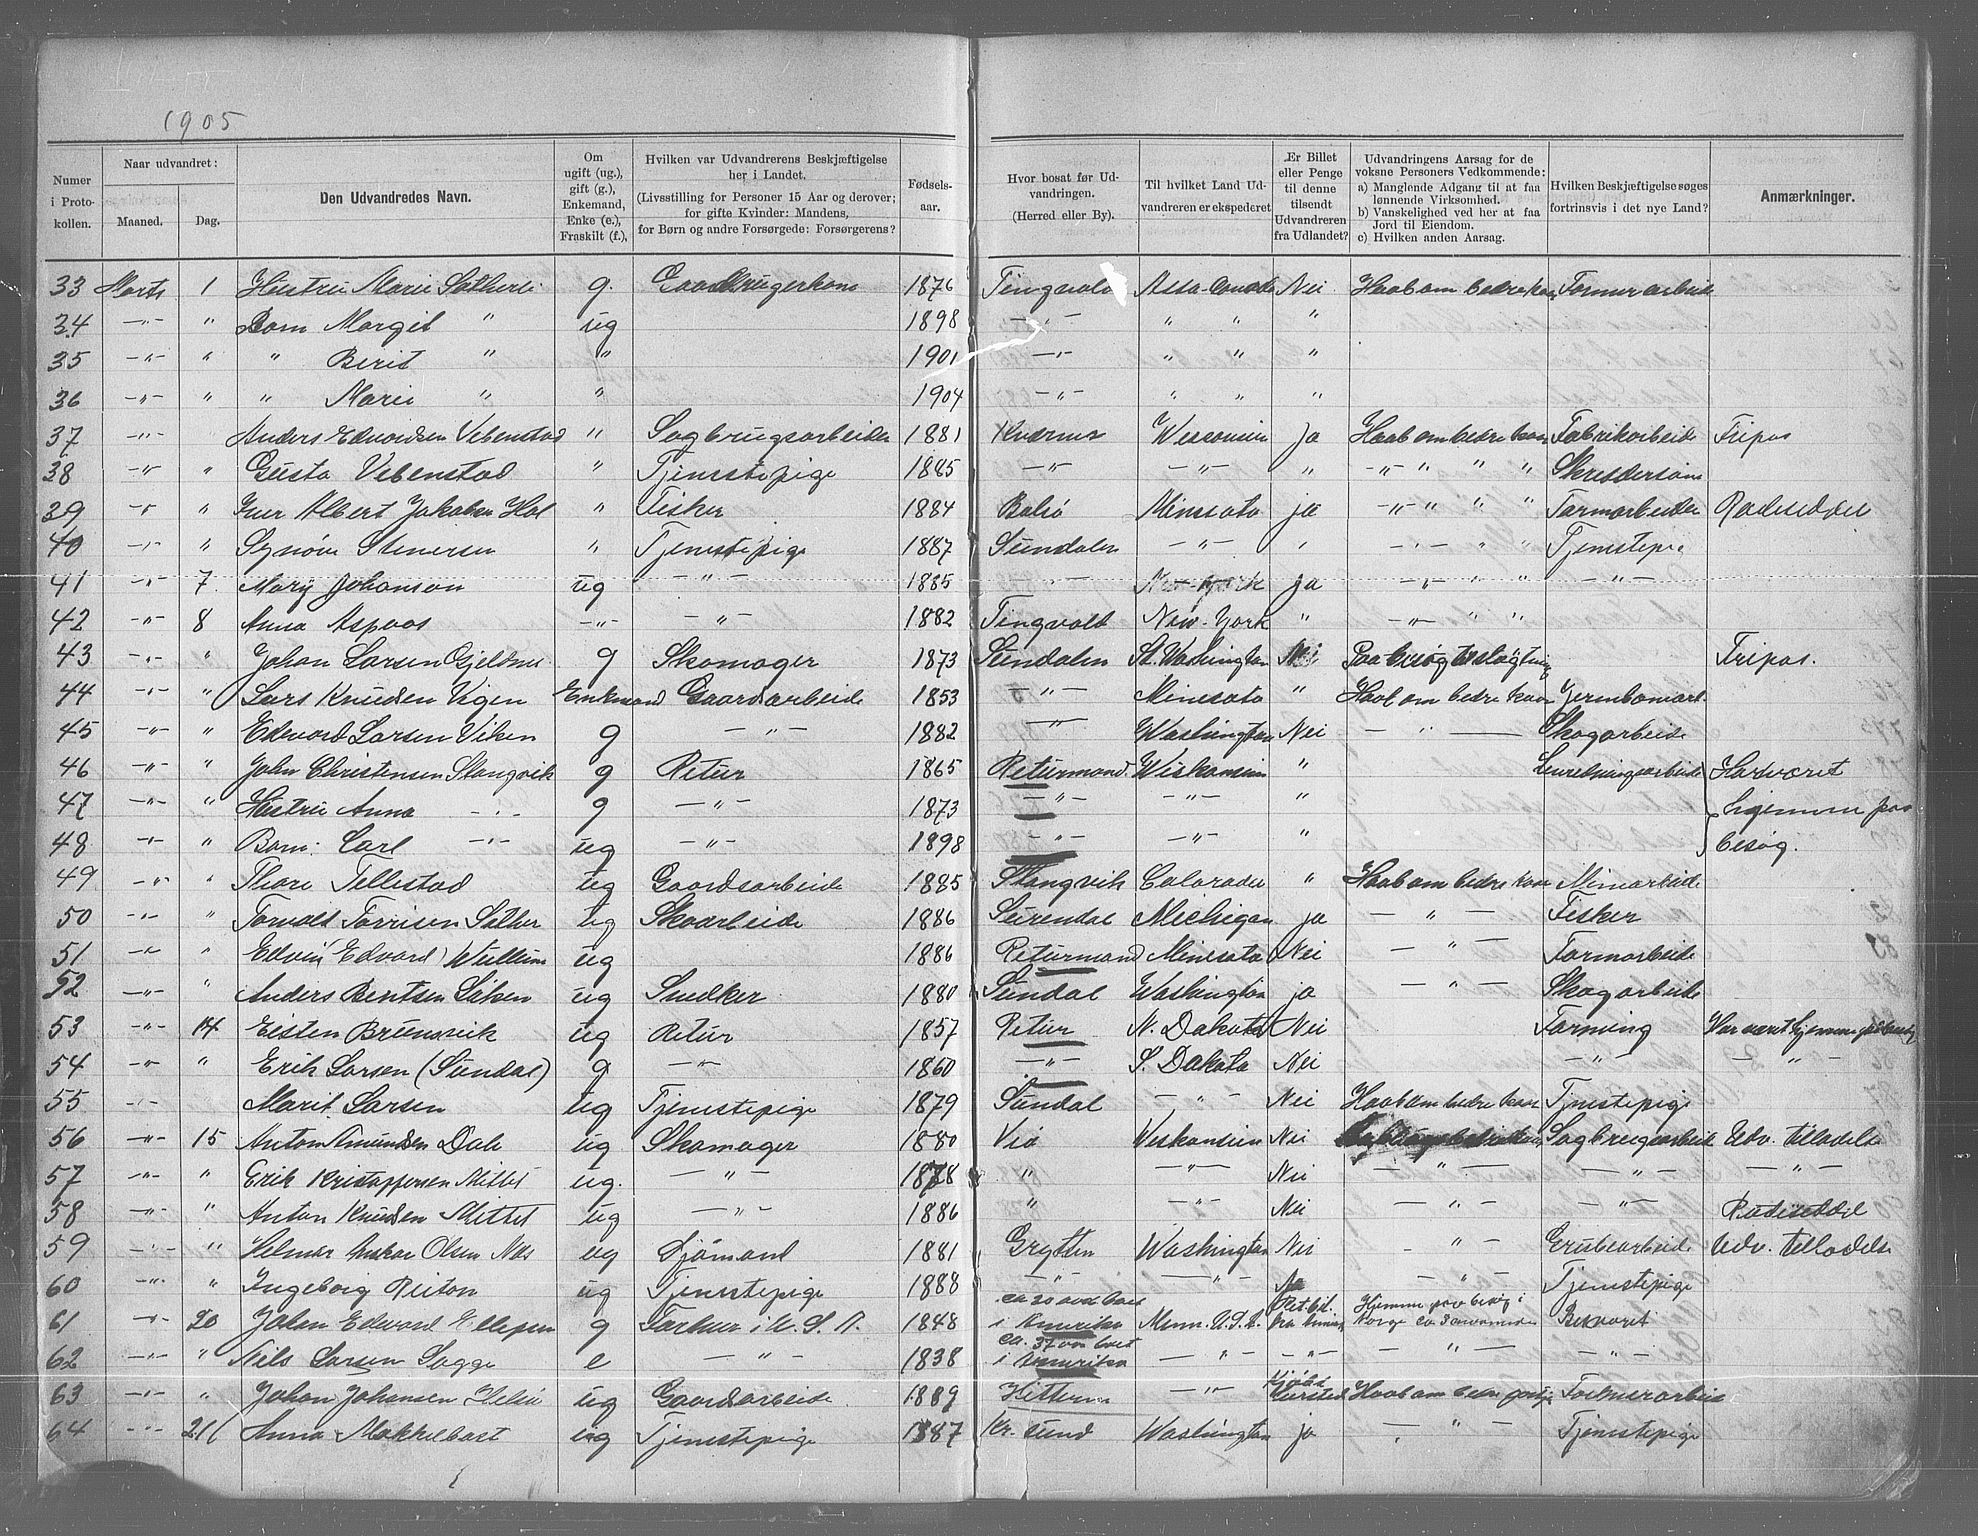 1905
Numer i Protokollen.
Naar udvandret:
Maaned.
Dag.
Den Udvandredes Navn.
Om ugift (ug.), gift (g.), Enkemand, Enke (e.), Fraskilt (f.),
Hvilken var Udvandrerens Beskjæftigelse her i Landet.
(Livsstilling for Personer 15 Aar og derover; for gifte Kvinder: Mandens, for Børn og andre Forsørgede: Forsørgerens?
Fødselsaar.
Hvor bosat før Udvandringen.
(Herred eller By).
Til hvilket Land Udvandreren er ekspederet
Er Billet eller Penge til denne tilsendt Udvandreren fra Udlandet?
Udvandringens Aarsag for de voksne Personers Vedkommende:
a) Manglende Adgang til at faa lønnende Virksomhed.
b) Vanskelighed ved her at faa Jord til Eiendom.
c) Hvilken anden Aarsag.
Hvilken Beskjæftigelse søges fortrinsvis i det nye Land?
Anmærkninger.
33 Marts 1 Hustru Marie g. 1876 Tingvold Nei Haab om bedre kaar Farmerarbeide
34 -"- " Barn Margit " ug 1898 -"- " " "
35 -"- " " Berit " " 1901 -"- " " "
36 -"- " " Marie " " 1904 -"- " " "
37 -"- Anders Edvardsen Vebenstad " Sagbrugsarbeider 1881 Kværnes Wesconsin ja Haab om bedre kaar Fabrikarbeide Fripas
38 -"- " Gusta Vebenstad " Tjenestepige 1885 -"- -"- " -"- " " " Skreddersøm
39 -"- " Iver Albert Jakobsen Hol " Fisker 1884 Bolsø Minesota ja -"- " " " Farmarbeider Rødeseddel
40 -"- " Synøve Stenersen " Tjenestepige 1887 Sundalen -"- " -"- " " Tjenstepi
41 -"- 7 Mary Johanson ug -"- 1885 -"- New-York ja -"- " " -"-
42 -"- 8 Anna Aspaas -"- -"- 1882 Tingvold New-York " -"- " "
43 -"- " Johan Larsen Gjeldnes g Skomager 1873 Sundalen St. Washington Nei Paa besøg til slægtning Fripas.
44 -"- " Lars Knudsen Vigen Enkmand Gaardsarbeide 1853 -"- Minesota " Haab om bedre kaar Jernbanearb.
45 -"- " Edvard Larsen Viken g -"- 1882 -"- Washington Nei -"- Skogarbeide
46 -"- " John Christensen Stangvik g Retur 1865 Returmand Wiskonsin " Har været
47 -"- " Hustru Anna -"- g -"- 1873 -"- -"- " hjemme paa
48 -"- " Barn: Carl -"- ug -"- 1898 -"- -"- " besøg.
49 -"- " Thore Tellestad ug Gaardsarbeide 1885 Stangvik Colorado " Haab om bedre kaar Minarbeide
50 -"- " Torvald Torrisen Sæther ug Skoarbeide 1886 Surendal Mechigan ja -"- Fisker
51 -"- " Edvin Edvard Wullum ug 1886 Returmand Minesota Nei -"- Farmarbeide
52 -"- " Anders Bentsen Liken ug Snedker 1880 Sundal Washington ja -"- Skogarbeide
53 -"- 14 Eisten Brunsvik ug Retur 1857 Retur N. Dakota Nei Farming Har været hjemme paa besøg
54 -"- " Erik Larsen (Sundal) g -"- 1860 -"- S. Dakota Nei -"- -"-
55 -"- Marit Larsen ug Tjenestepige 1879 Sundal -"- Nei Haab om bedre kaar Tjnestepige
56 -"- 15 Anton Amundsen Dale ug Skomager 1880 Viø Weskonsin Nei Sagbrugsarbeide Udv. tilladelse
57 -"- " Erik Kristoffersen Mittet ug. -"- 1878 " -"- Nei -"- -"- -"-
58 -"- " Anton Knudsen Mittet ug -"- 1886 " -"- Nei -"- -"- Rødeseddel
59 -"- " Hilmar Anskar Olsen Næs ug Sjømand 1881 Grytten Washington Nei -"- Grubearbeide Udv. tilladelse
60 -"- " Ingeborg Reiton ug Tjenestepige 1888 -"- -"- Ja -"- Tjenestepige
61 -"- 20 John Edward Ellefsen g Farmer i U. S. A. 1848 ca 20 aar boet i Amerika Minn. U.S.A. Ret. bil. fra Hjemme paa besøg i Norge
62 -"- " Nils Larsen Sagge e -"- 1838 ca. 37 aar boet i Amerika -"- -"- -"- -"-
63 -"- " Johan Johansen ug Gaardsarbeide 1889 Hittern -"- Haab om bedre Farmerarbeide
64 -"- 21 Anna Makkelbost ug Tjenestepige 1887 Kr. sund Washington ja -"- Tjenestepige